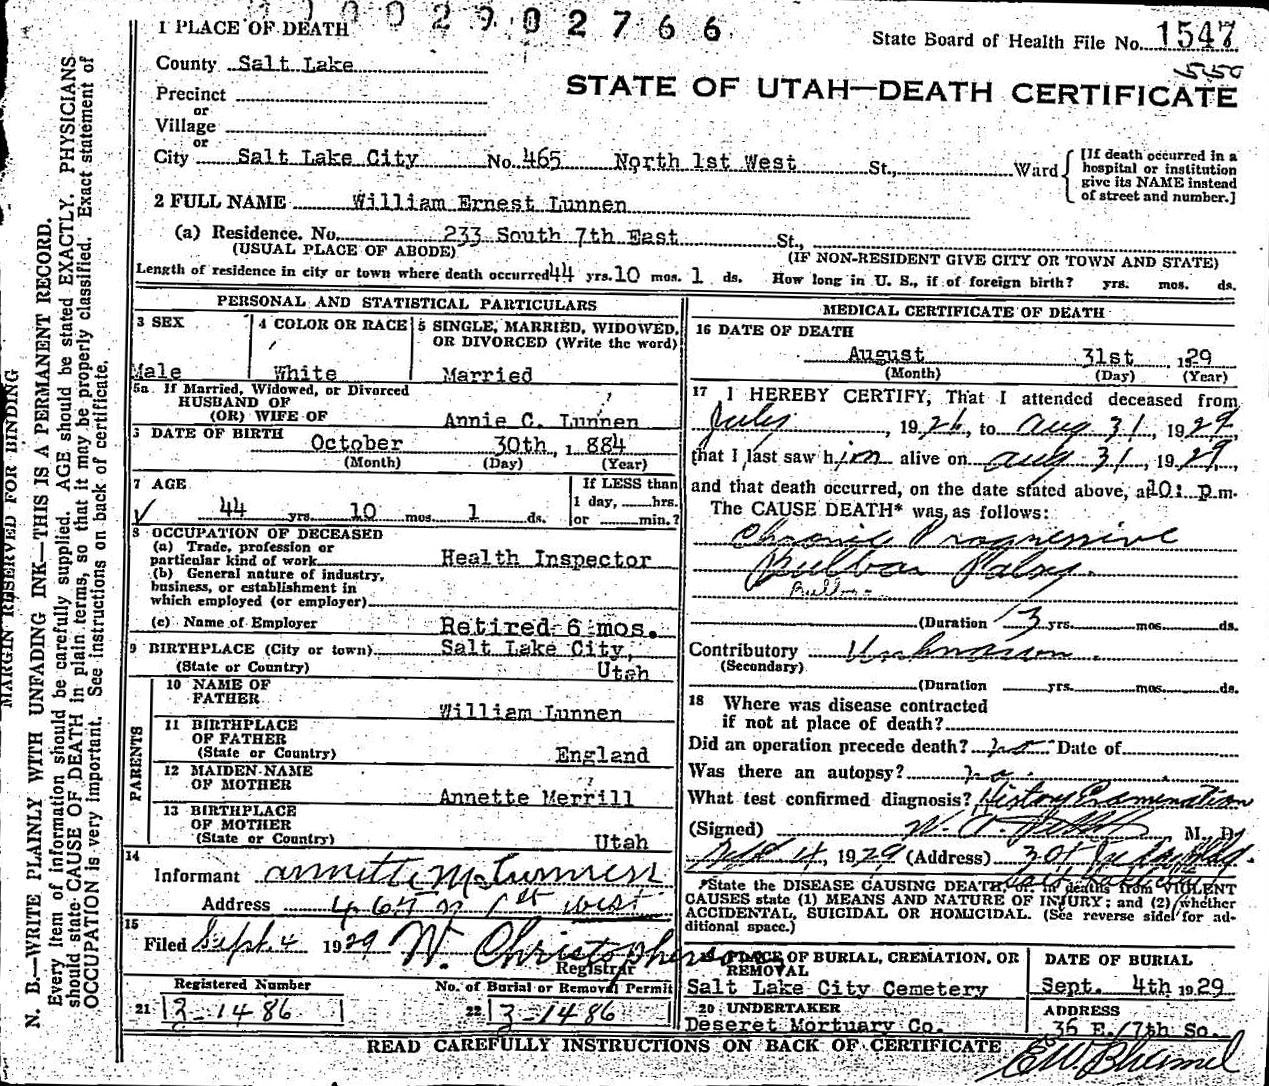 0 0 2 9 0 2 7 6 6
1 PLACE OF DEATH
State Board of Health File No. 1547
550
County Salt Lake
STATE OF UTAH—DEATH CERTIFICATE
Precinct
or
Village
or
City Salt Lake City No. 465 North 1st West St., Ward
[If death occurred in a
hospital or institution
give its NAME instead
of street and number.]
2 FULL NAME William Ernest Lunnen
(a) Residence. No. 233 South 7th East St.,
(USUAL PLACE OF ABODE) (IF NON-RESIDENT GIVE CITY OR TOWN AND STATE)
Length of residence in city or town where death occurred 44 yrs. 10 mos. 1 ds. How long in U. S., if of foreign birth? yrs. mos. ds.
MARGIN RESERVED FOR BINDING
N. B.—WRITE PLAINLY WITH UNFADING INK—THIS IS A PERMANENT RECORD.
Every item of information should be carefully supplied. AGE should be stated EXACTLY. PHYSICIANS
should state CAUSE OF DEATH in plain terms, so that it may be properly classified. Exact statement of
OCCUPATION is very important. See instructions on back of certificate.
PERSONAL AND STATISTICAL PARTICULARS
3 SEX
Male
4 COLOR OR RACE
White
5 SINGLE, MARRIED, WIDOWED,
OR DIVORCED (Write the word)
Married
5a If Married, Widowed, or Divorced
HUSBAND OF
(OR) WIFE OF Annie C. Lunnen
DATE OF BIRTH October 30th, 1 884
(Month) (Day) (Year)
7 AGE
44 yrs. 10 mos. 1 ds.
If LESS than
1 day, hrs.
or min.?
8 OCCUPATION OF DECEASED
(a) Trade, profession or
particular kind of work Health Inspector
(b) General nature of industry,
business, or establishment in
which employed (or employer)
(c) Name of Employer Retired 6 mos.
9 BIRTHPLACE (City or town) Salt Lake City,
(State or Country) Utah
PARENTS
10 NAME OF
FATHER William Lunnen
11 BIRTHPLACE
OF FATHER
(State or Country) England
12 MAIDEN NAME
OF MOTHER Annette Merrill
13 BIRTHPLACE
OF MOTHER
(State or Country) Utah
14
Informant Annette M. Lunnen
Address 465 N 1st West
15
Filed Sept. 4 1929 W. Christopherson
Registrar
Registered Number No. of Burial or Removal Permit
21 3-1486 22 3-1486
MEDICAL CERTIFICATE OF DEATH
16 DATE OF DEATH
August 31st, 1929
(Month) (Day) (Year)
17 I HEREBY CERTIFY, That I attended deceased from
July, 1926, to Aug 31, 1929,
that I last saw him alive on Aug 31, 1929,
and that death occurred, on the date stated above, at 10: p.m.
The CAUSE DEATH* was as follows:
Chronic Progressive
Bulbar Palsy.
(Duration 3 yrs. mos. ds.
Contributory Unknown.
(Secondary)
(Duration yrs. mos. ds.
18 Where was disease contracted
if not at place of death?
Did an operation precede death? no Date of
Was there an autopsy? no.
What test confirmed diagnosis? History Examination
(Signed) M. D.
Sept 4, 1929 (Address) 305
*State the DISEASE CAUSING DEATH, or in deaths from VIOLENT
CAUSES state (1) MEANS AND NATURE OF INJURY; and (2) whether
ACCIDENTAL, SUICIDAL OR HOMICIDAL. (See reverse side for ad-
ditional space.)
19 PLACE OF BURIAL, CREMATION, OR
REMOVAL
Salt Lake City Cemetery
DATE OF BURIAL
Sept. 4th 1929
20 UNDERTAKER
Deseret Mortuary Co.
ADDRESS
36 E. 7th So.
READ CAREFULLY INSTRUCTIONS ON BACK OF CERTIFICATE